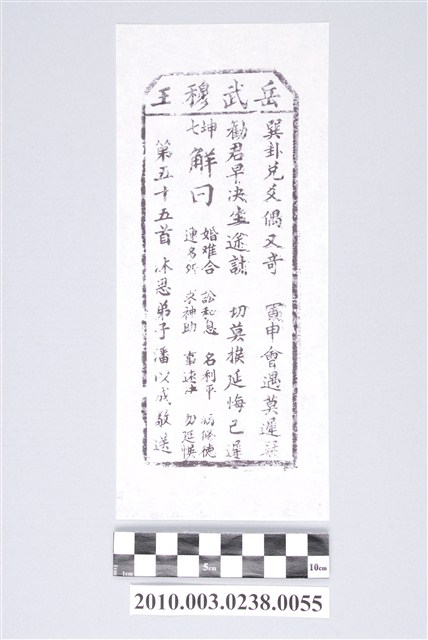 岳武穆王
巽卦兌爻偶又奇 寅申會遇莫遲疑
勸君早決坐途誌 切莫挨延悔已遲
坤七
解曰
婚难合 訟和息 名利平 病修德
運多 求神助 事速 勿延悞
第五十五首 沐恩弟子潘以成敬送
5cm
10cm
2010.003.0238.0055